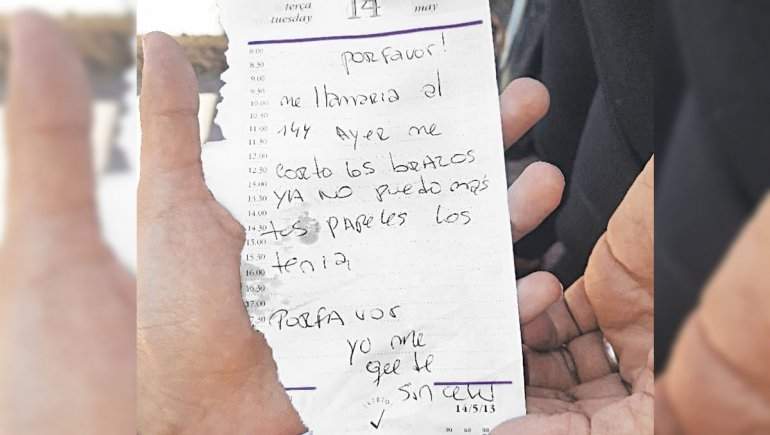 terça
tuesday
14
may
8.00
8.30
9.00
9.30
10.00
10.30
11.00
11.30
12.00
12.30
13.00
13.30
14.00
14.30
15.00
15.30
16.00
16.30
17.00
17.30
porfavor!
me llamaria al
144 Ayer me
corto los brazos
YA NO puedo mas
tus papeles los
tenia
Porfavor
yo me
que de
sin celu
14/5/13